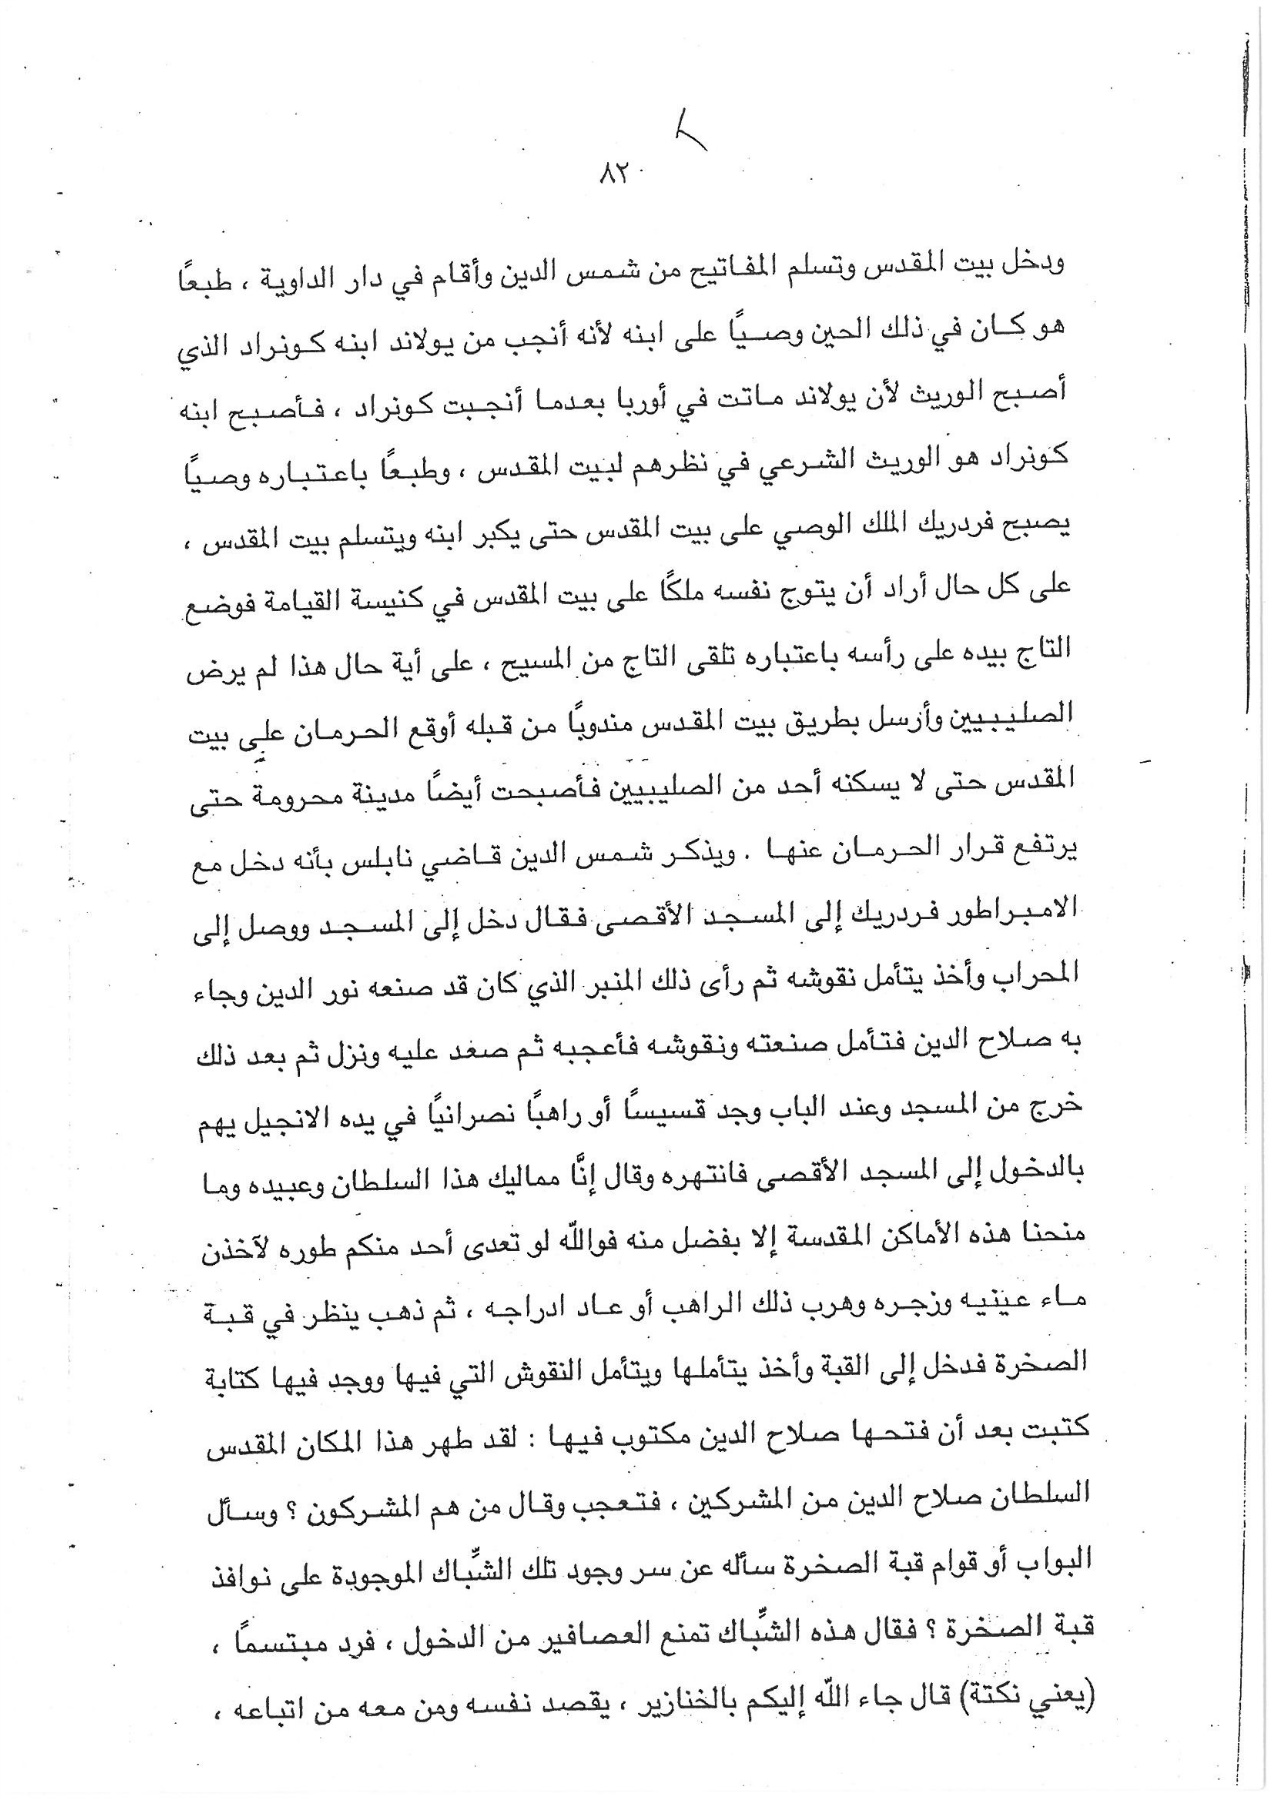 ٨٢
ودخل بيت المقدس وتسلم المفاتيح من شمس الدين وأقام في دار الداوية ، طبعًا
هو كان في ذلك الحين وصيًا على ابنه لأنه أنجب من يولاند ابنه كونراد الذي
أصبح الوريث لأن يولاند ماتت في أوربا بعدما أنجبت كونراد ، فأصبح ابنه
كونراد هو الوريث الشرعي في نظرهم لبيت المقدس ، وطبعًا باعتباره وصيًا
يصبح فردريك الملك الوصي على بيت المقدس حتى يكبر ابنه ويتسلم بيت المقدس ،
على كل حال أراد أن يتوج نفسه ملكًا على بيت المقدس في كنيسة القيامة فوضع
التاج بيده على رأسه باعتباره تلقى التاج من المسيح ، على أية حال هذا لم يرض
الصليبيين وأرسل بطريق بيت المقدس مندوبًا من قبله أوقع الحرمان على بيت
المقدس حتى لا يسكنه أحد من الصليبيين فأصبحت أيضًا مدينة محرومة حتى
يرتفع قرار الحرمان عنها . ويذكر شمس الدين قاضي نابلس بأنه دخل مع
الامبراطور فردريك إلى المسجد الأقصى فقال دخل إلى المسجد ووصل إلى
المحراب وأخذ يتأمل نقوشه ثم رأى ذلك المنبر الذي كان قد صنعه نور الدين وجاء
به صلاح الدين فتأمل صنعته ونقوشه فأعجبه ثم صعد عليه ونزل ثم بعد ذلك
خرج من المسجد وعند الباب وجد قسيسًا أو راهبًا نصرانيًا في يده الانجيل يهم
بالدخول إلى المسجد الأقصى فانتهره وقال إنَّا مماليك هذا السلطان وعبيده وما
منحنا هذه الأماكن المقدسة إلا بفضل منه فوالله لو تعدى أحد منكم طوره لآخذن
ماء عينيه وزجره وهرب ذلك الراهب أو عاد ادراجه ، ثم ذهب ينظر في قبة
الصخرة فدخل إلى القبة وأخذ يتأملها ويتأمل النقوش التي فيها ووجد فيها كتابة
كتبت بعد أن فتحها صلاح الدين مكتوب فيها : لقد طهر هذا المكان المقدس
السلطان صلاح الدين من المشركين ، فتعجب وقال من هم المشركون ؟ وسأل
البواب أو قوام قبة الصخرة سأله عن سر وجود تلك الشِّباك الموجودة على نوافذ
قبة الصخرة ؟ فقال هذه الشِّباك تمنع العصافير من الدخول ، فرد مبتسمًا ،
(يعني نكتة) قال جاء الله إليكم بالخنازير ، يقصد نفسه ومن معه من اتباعه ،